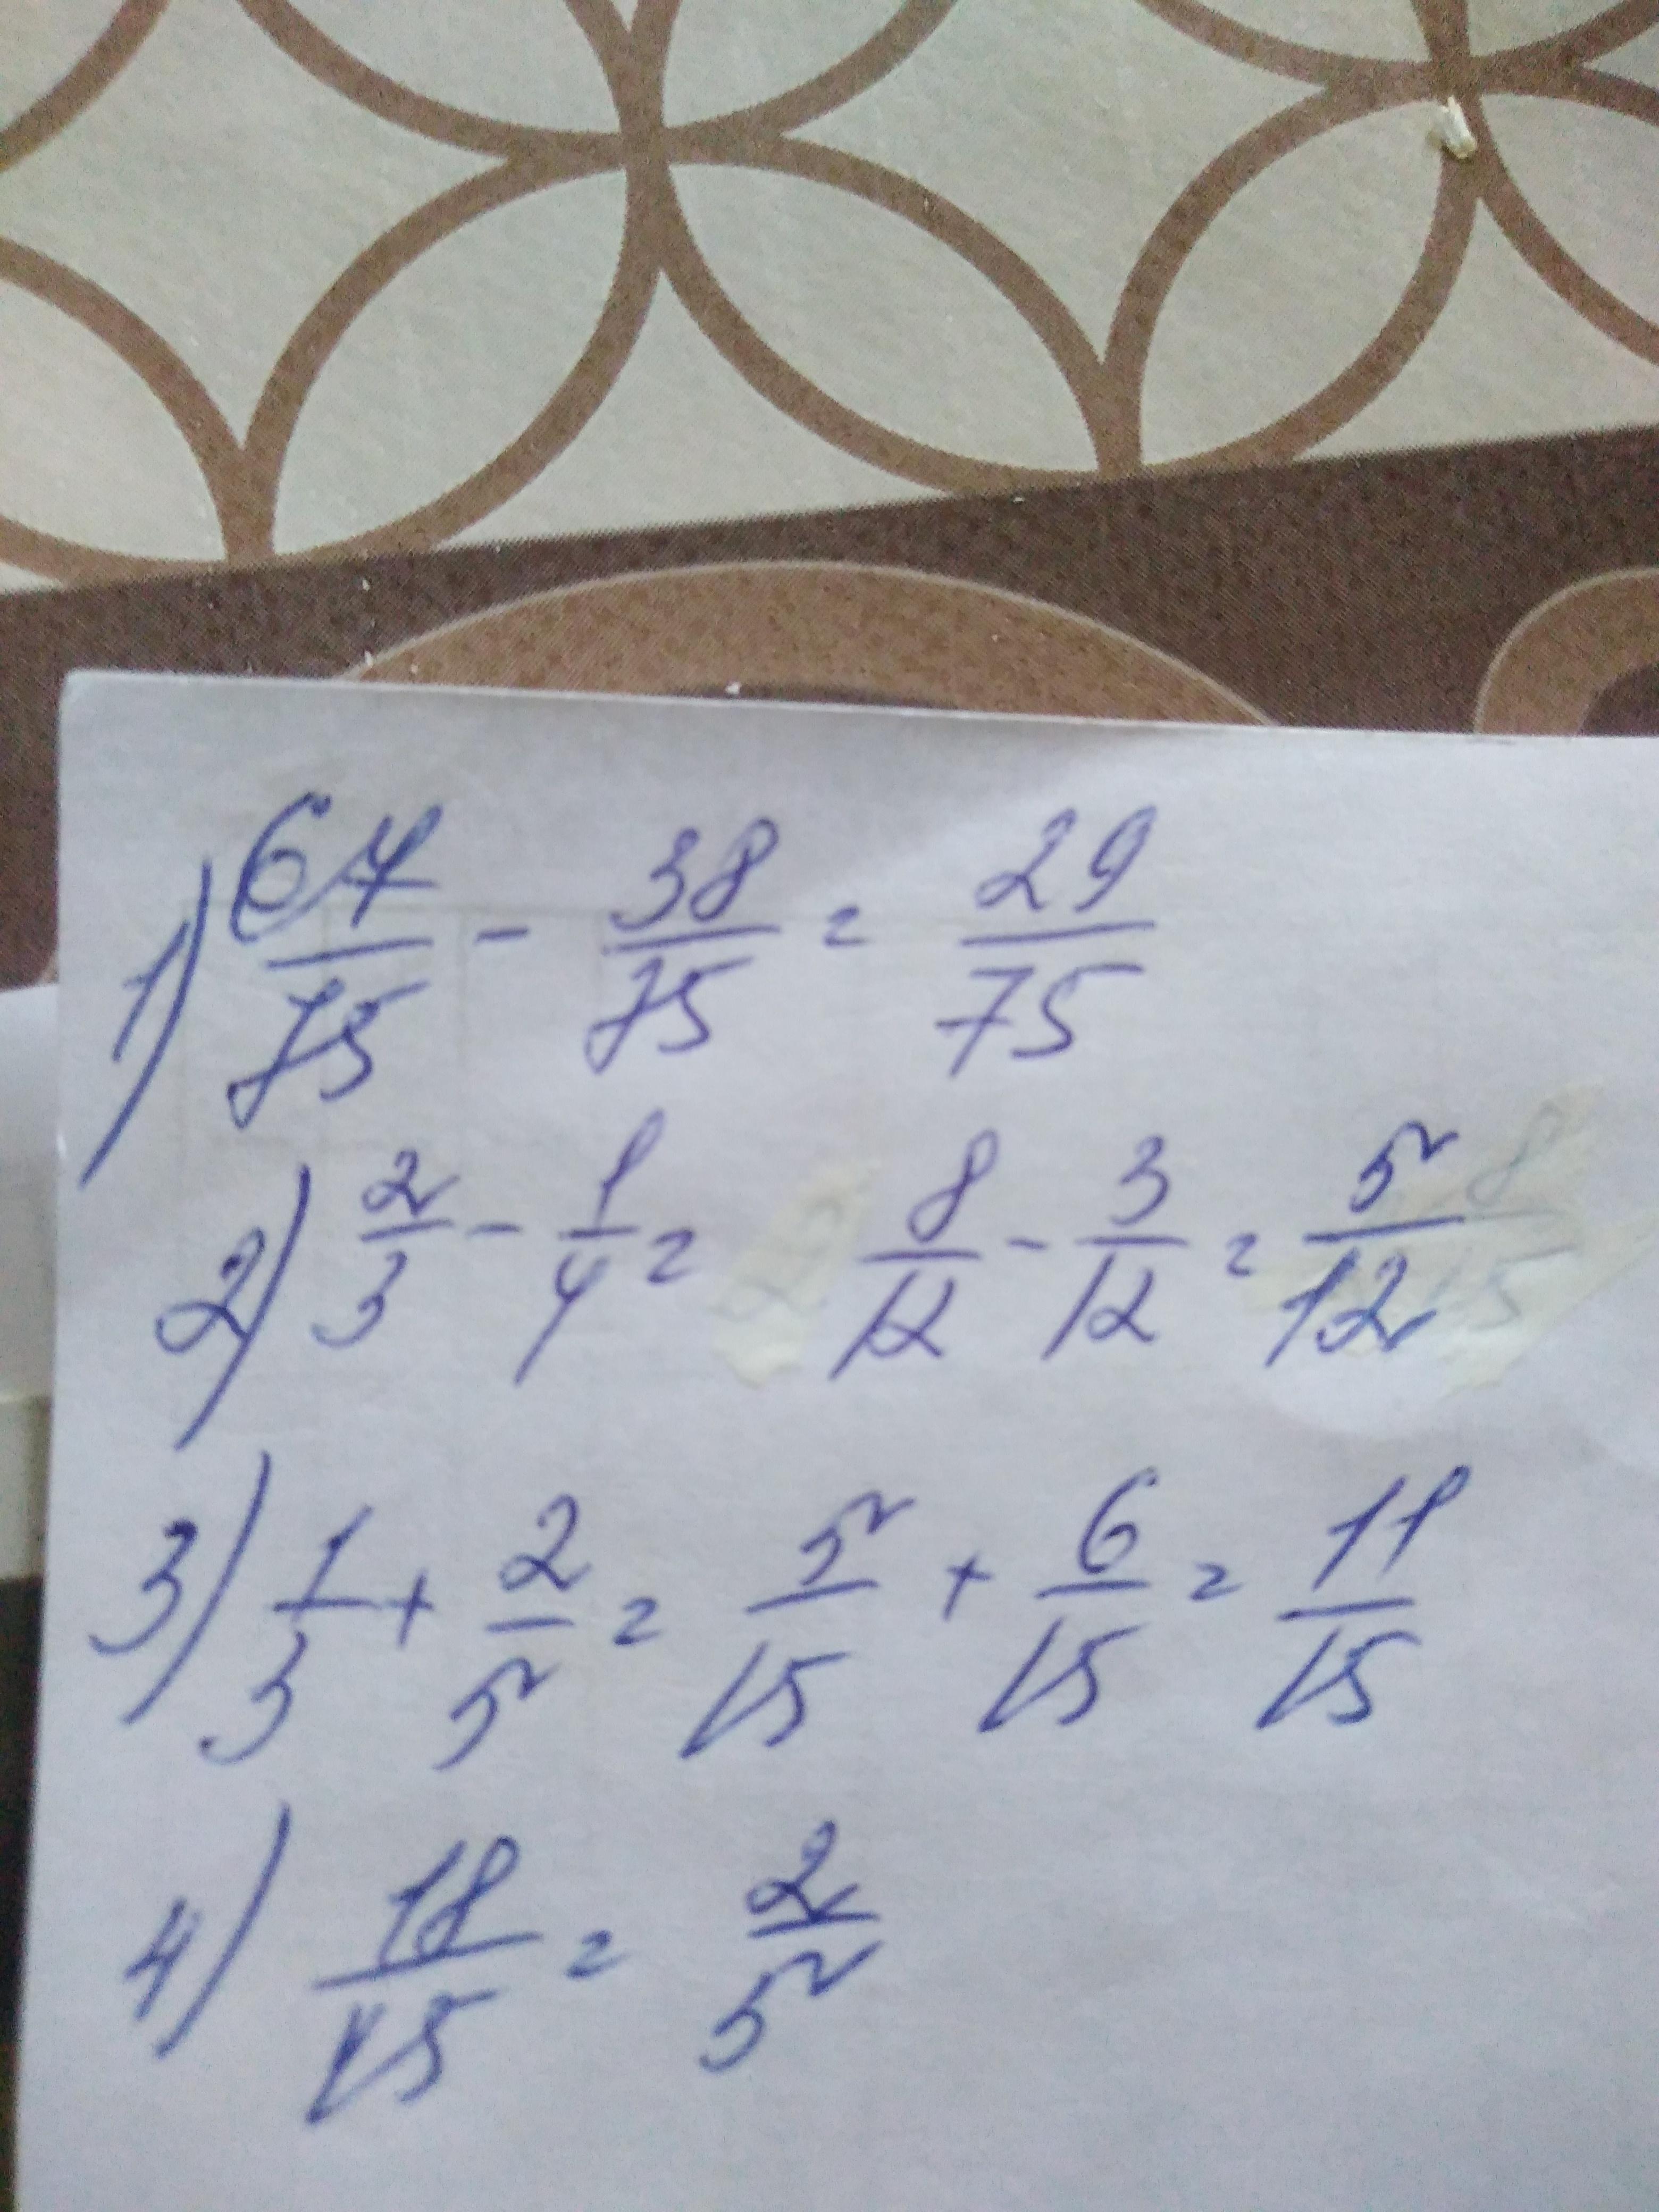 1) 67/75 - 38/75 = 29/75
2) 2/3 - 1/4 = 8/12 - 3/12 = 5/12
3) 1/3 + 2/5 = 5/15 + 6/15 = 11/15
4) 18/45 = 2/5